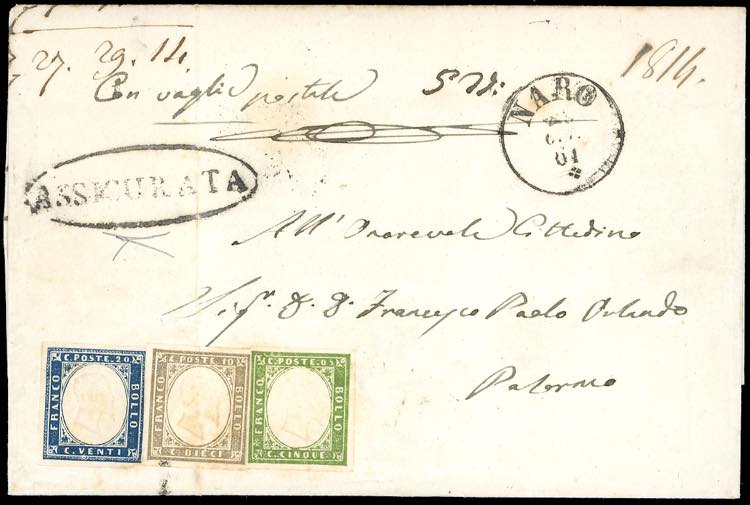 27. 29. 14.
Con vaglia postale
1814.
NARO
61
ASSICURATA
All' Onorevole Cittadino
Sigr. D. D. Francesco Paolo Orlando
Palermo
C. POSTE. 20
FRANCO
BOLLO
C. VENTI
C. POSTE 10
FRANCO
BOLLO
C. DIECI
C. POSTE. 05
FRANCO
BOLLO
C. CINQUE